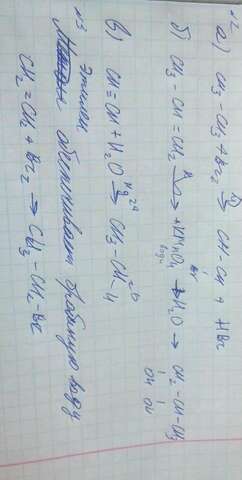 №2
а) CH3 - CH3 + Br2 → CH - CH + HBr
Br
б) CH3 - CH = CH2 → + KMnO4 + H2O → CH2 - CH - CH3
OH OH
в) CH≡CH + H2O → Hg2+ CH3 - CH - H
№3 этилен обесцвечивает бромную воду
CH2 = CH2 + Br2 → CH3 - CH2 - Br